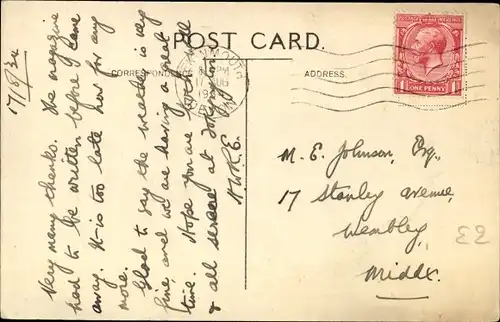 POST CARD.
CORRESPONDENCE
ADDRESS.
17/8/34
Very many thanks. The magazine
had to be written before I came
away. It is too late now for any
more.
Glad to say the weather is very
fine, and we are having a great
time. Hope you are both well
& all serene at Tokyngton.
H.W.R.E.
M. E. Johnson, Esq.,
17 Stanley Avenue,
Wembley,
Middx.
£2
POSTAGE REVENUE
1 ONE PENNY 1
MOUTH
PM
17 AUG